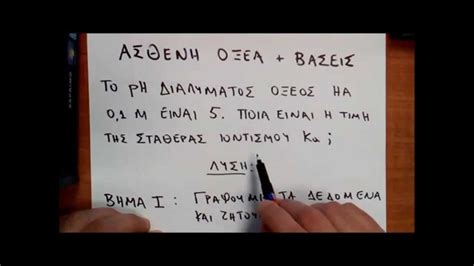 ΑΣΘΕΝΗ ΟΞΕΑ + ΒΑΣΕΙΣ
ΤΟ pH ΔΙΑΛΥΜΑΤΟΣ ΟΞΕΟΣ ΗΑ
0,1 Μ ΕΙΝΑΙ 5. ΠΟΙΑ ΕΙΝΑΙ Η ΤΙΜΗ
ΤΗΣ ΣΤΑΘΕΡΑΣ ΙΟΝΤΙΣΜΟΥ Κα ;
ΛΥΣΗ:
ΒΗΜΑ Ι : ΤΑ ΔΕΔΟΜΕΝΑ
ΚΑΙ